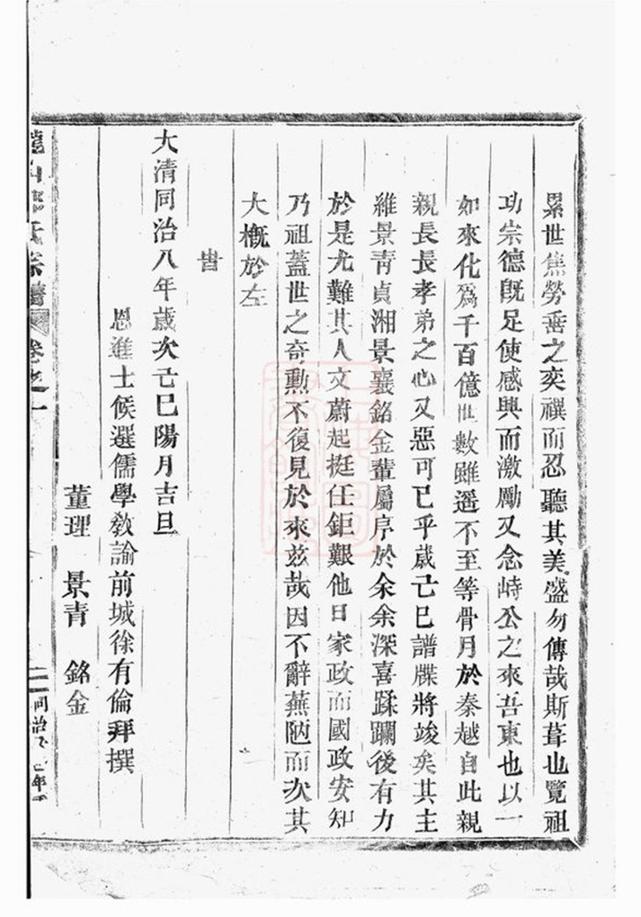 累世焦勞垂之奕禩而忍聽其美盛勿傳哉斯葺也覽祖
功宗德旣足使感興而激勵又念峙公之來吾東也以一
如來化爲千百億世數雖遥不至等骨月於秦越自此親
親長長孝弟之心又惡可已乎歲己巳譜牒將竣矣其主
維景青貞湘景襄銘金輩屬序於余余深喜蹂躪後有力
於是尤難其人文蔚起挺任鉅艱他日家政而國政安知
乃祖蓋世之奇勳不復見於來兹哉因不辭蕪陋而次其
大槪於左
旹
大清同治八年歲次己巳陽月吉旦
恩進士候選儒學敎諭前城徐有倫拜撰
董理 景青 銘金
氏宗譜 卷之一
二 同治 年